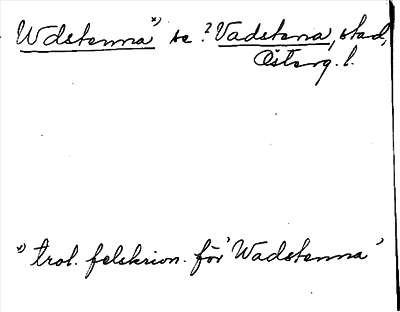 Wdstenna *) se ? Vadstena, stad,
Österg. l.
*) trol. felskrivn. för 'Wadstenna'